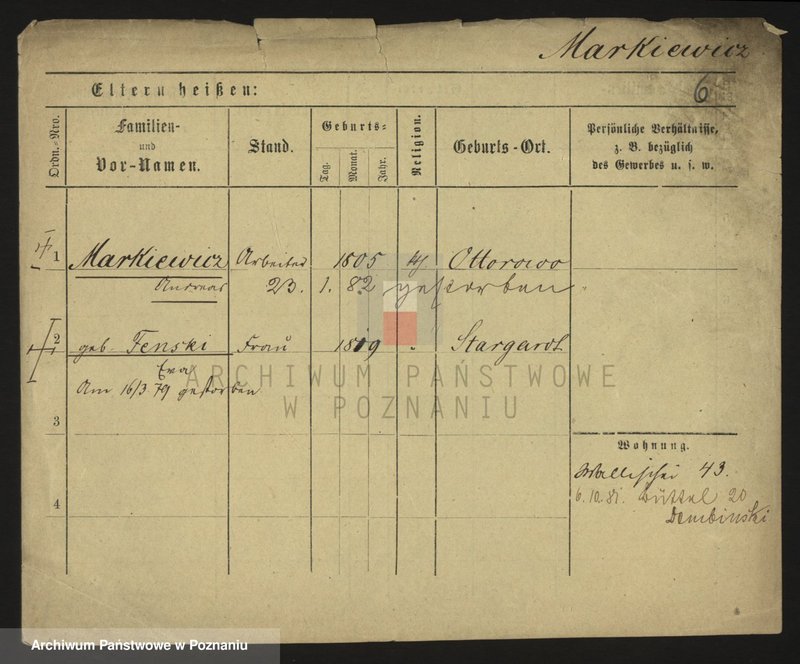 Markiewicz
6
Eltern heißen:
Ordn.-Nro.
Familien-
und
Vor-Namen.
Stand.
Geburts-
Tag.
Monat.
Jahr.
Religion.
Geburts-Ort.
Persönliche Verhältnisse,
z. B. bezüglich
des Gewerbes u. s. w.
1 Markiewicz Arbeiter 1805 Ottorowo
Andreas 23. 1. 82 gestorben
2 geb. Fenski Frau 1819 " Stargardt
Eva
Am 16/3 79 gestorben
ARCHIWUM PAŃSTWOWE
W POZNANIU
3
Wohnung.
Wallischei 43.
6.10.81. Büttel 20
Dembinski
4
Archiwum Państwowe w Poznaniu